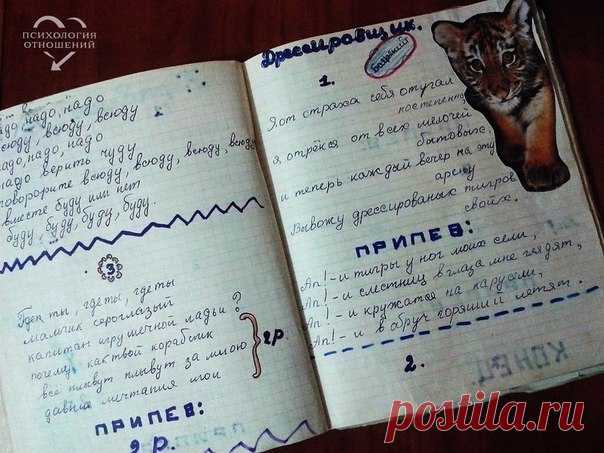 ПСИХОЛОГИЯ
ОТНОШЕНИЙ
надо, надо
всюду, всюду, всюду
надо, надо, надо
надо верить чуду
всюду, всюду, всюду, всюду
вместе буду или нет
буду, буду, буду, буду.
3
где ты, где ты
мальчик сероглазый
капитан игрушечной ладьи?
почему как твой кораблик
всё плывут плывут за мною
давние мечтания мои
2р.
ПРИПЕВ:
2 р.
Дрессировщик.
Боярский
1.
Я от страха себя отучал
постепенно,
я отрёкся от всех мелочей
бытовых,
и теперь каждый вечер на эту
арену
Вывожу дрессированых тигров
своих.
ПРИПЕВ:
Ап! - и тигры у ног моих сели,
Ап! - и с лестниц в глаза мне глядят,
Ап! - и кружатся на карусели,
Ап! - и в обруч горящий летят.
2.
КОНЕЦ
постила.ru